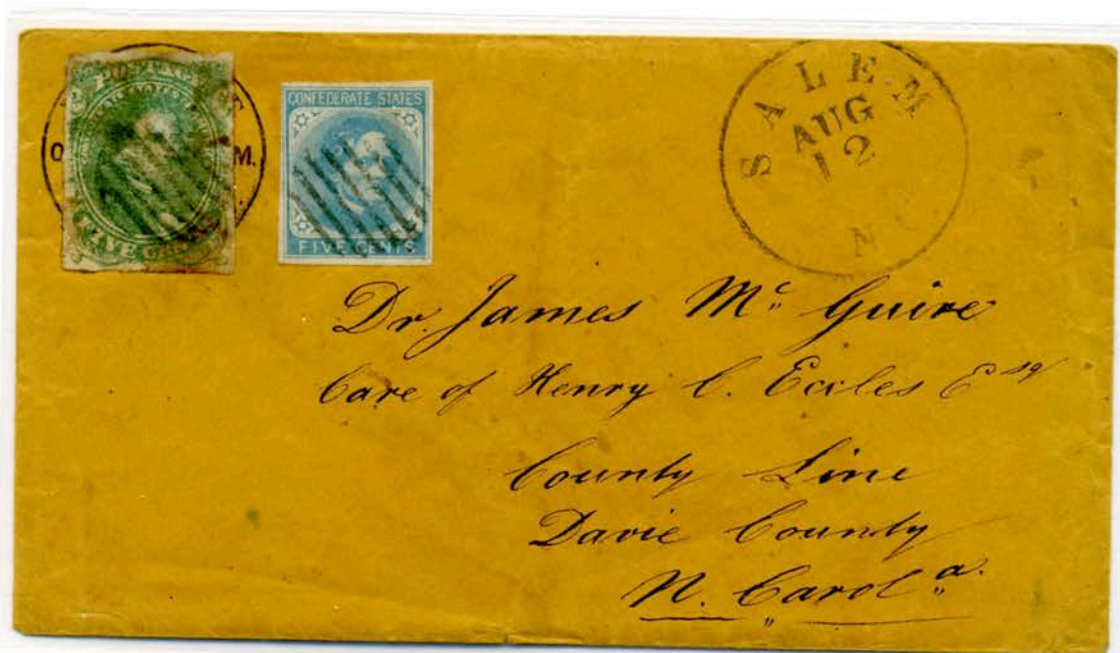 POSTAGE
FIVE CENTS
O M.
CONFEDERATE STATES
FIVE CENTS
SALEM
AUG
12
N
Dr. James Mc Guire
Care of Henry C. Eccles Esq
County Line
Davie County
N. Carola.